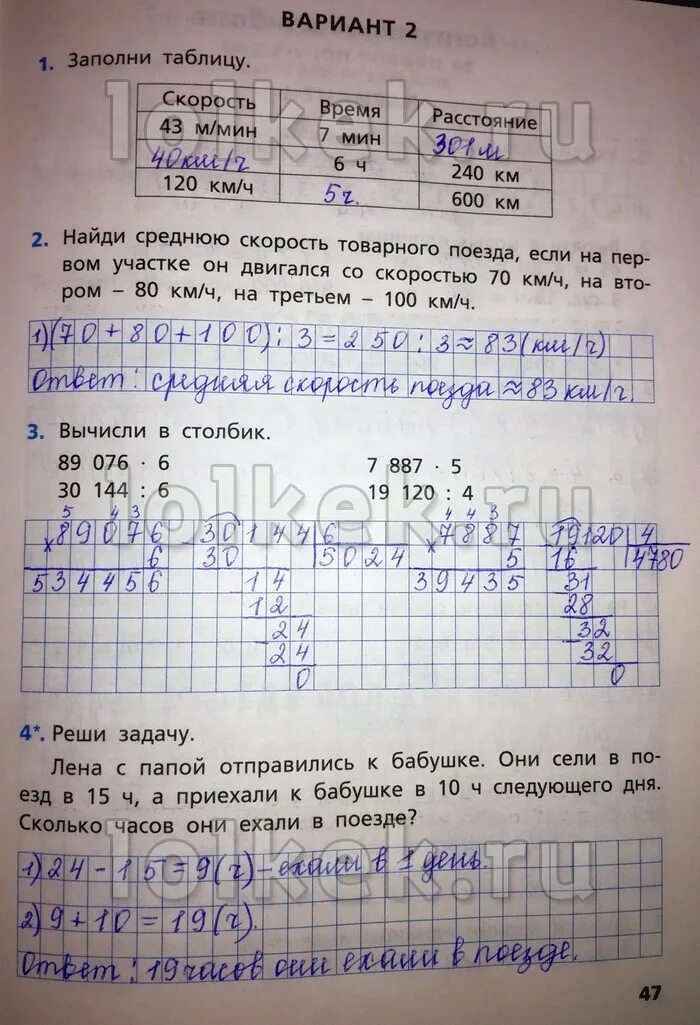 ВАРИАНТ 2
1. Заполни таблицу.
Скорость Время Расстояние
43 м/мин 7 мин 301 м
40 км/ч 6 ч 240 км
120 км/ч 5 ч. 600 км
lolkek.ru
2. Найди среднюю скорость товарного поезда, если на пер-
вом участке он двигался со скоростью 70 км/ч, на вто-
ром – 80 км/ч, на третьем – 100 км/ч.
1) (70 + 80 + 100) : 3 = 250 : 3 ≈ 83 (км/ч)
Ответ : средняя скорость поезда ≈ 83 км/ч.
3. Вычисли в столбик.
89 076 · 6 7 887 · 5
30 144 : 6 19 120 : 4
lolkek.ru
5 4 3 4 4 3
× 89076 30144 6 × 7887 19120 4
6 30 5024 5 16 4780
534456 14 39435 31
12 28
24 32
24 32
0 0
4*. Реши задачу.
Лена с папой отправились к бабушке. Они сели в по-
езд в 15 ч, а приехали к бабушке в 10 ч следующего дня.
Сколько часов они ехали в поезде?
1) 24 – 15 = 9 (ч) – ехали в 1 день.
lolkek.ru
2) 9 + 10 = 19 (ч).
Ответ : 19 часов они ехали в поезде.
47